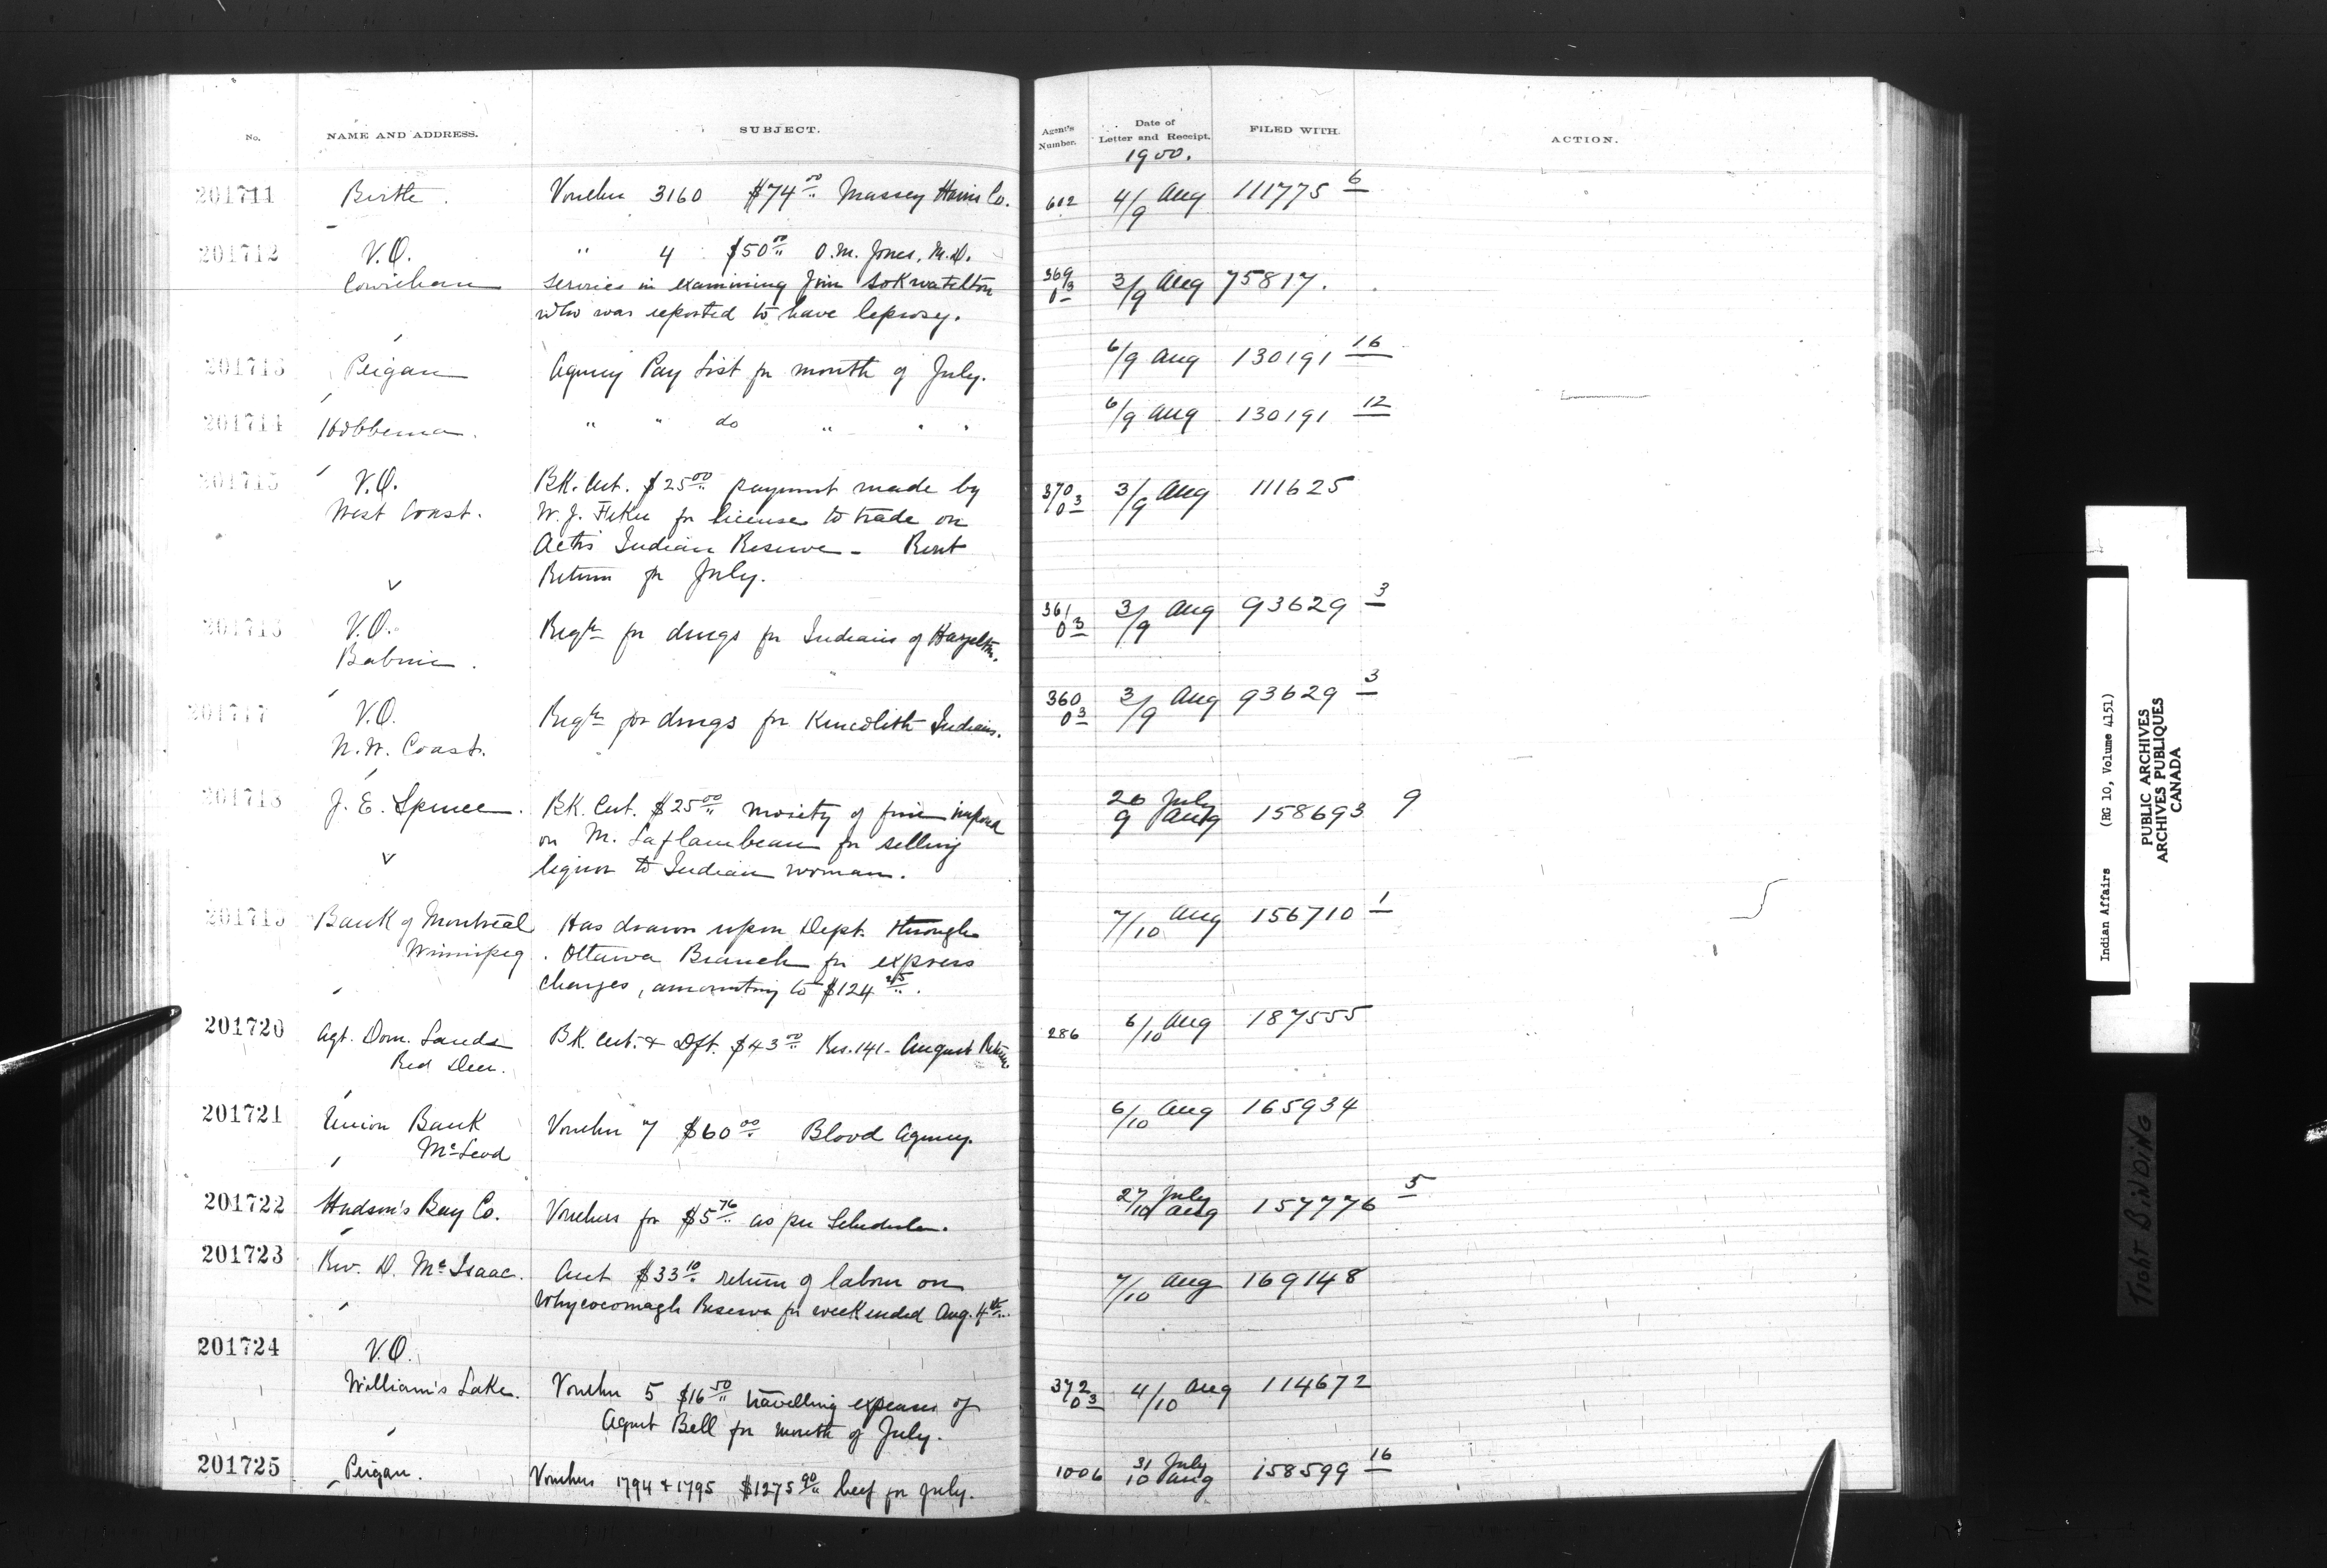 No.
NAME AND ADDRESS.
SUBJECT.
Agent's Number.
Date of Letter and Receipt.
FILED WITH.
ACTION.
1900.
201711 Birtle. Voucher 3160 $74 00 Massey Harris Co. 602 4/9 Aug 111775 6
201712 V.O. " 4 $50 00 O.M. Jones, M.D.
Cowichan services in examining Jim 369/03 3/9 Aug 75817.
who was reported to have leprosy.
201713 Peigan Agency Pay List for month of July. 6/9 Aug 130191 16
201714 Hobbema. " " do " " " 6/9 Aug 130191 12
201715 V.O. BK. Cert. $25 00 payment made by 370/03 3/9 Aug 111625
West Coast. W.J. for license to trade on
Indian Reserve - Rent
Return for July.
201716 V.O. Regtn for drugs for Indians of Hazelton. 361/03 3/9 Aug 93629 3
Babine.
201717 V.O. Regtn for drugs for Kincolith Indians. 360/03 3/9 Aug 93629 3
N.W. Coast.
201718 J.E. Spence. BK. Cert. $25 00 moiety of fine imposed 20 July
9 Aug 158693 9
on M. Laflambeau for selling
liquor to Indian woman.
201719 Bank of Montreal Has drawn upon Dept. through 7/10 Aug 156710 1
Winnipeg. Ottawa Branch for express
charges, amounting to $124 45.
201720 Agt. Dom. Lands BK. Cert. & Dft. $43 00 Res. 141 - August Return 286 6/10 Aug 187555
Red Deer.
201721 Union Bank Voucher 7 $60 00 Blood Agency. 6/10 Aug 165934
McLeod
201722 Hudson's Bay Co. Vouchers for $5 76 as per Schedule. 27 July
10 Aug 157776 5
201723 Rev. D. McIsaac. Acct $33 10 return of labour on 7/10 Aug 169148
Whycocomagh Reserve for week ended Aug. 4th.
201724 V.O.
William's Lake. Voucher 5 $16 50 travelling expenses of 372/03 4/10 Aug 114672
Agent Bell for month of July.
201725 Peigan. Vouchers 1794 & 1795 $1275 90 beef for July. 1006 31 July
10 Aug 158599 16
Indian Affairs (RG 10, Volume 4151)
PUBLIC ARCHIVES
ARCHIVES PUBLIQUES
CANADA
TIGHT BINDING